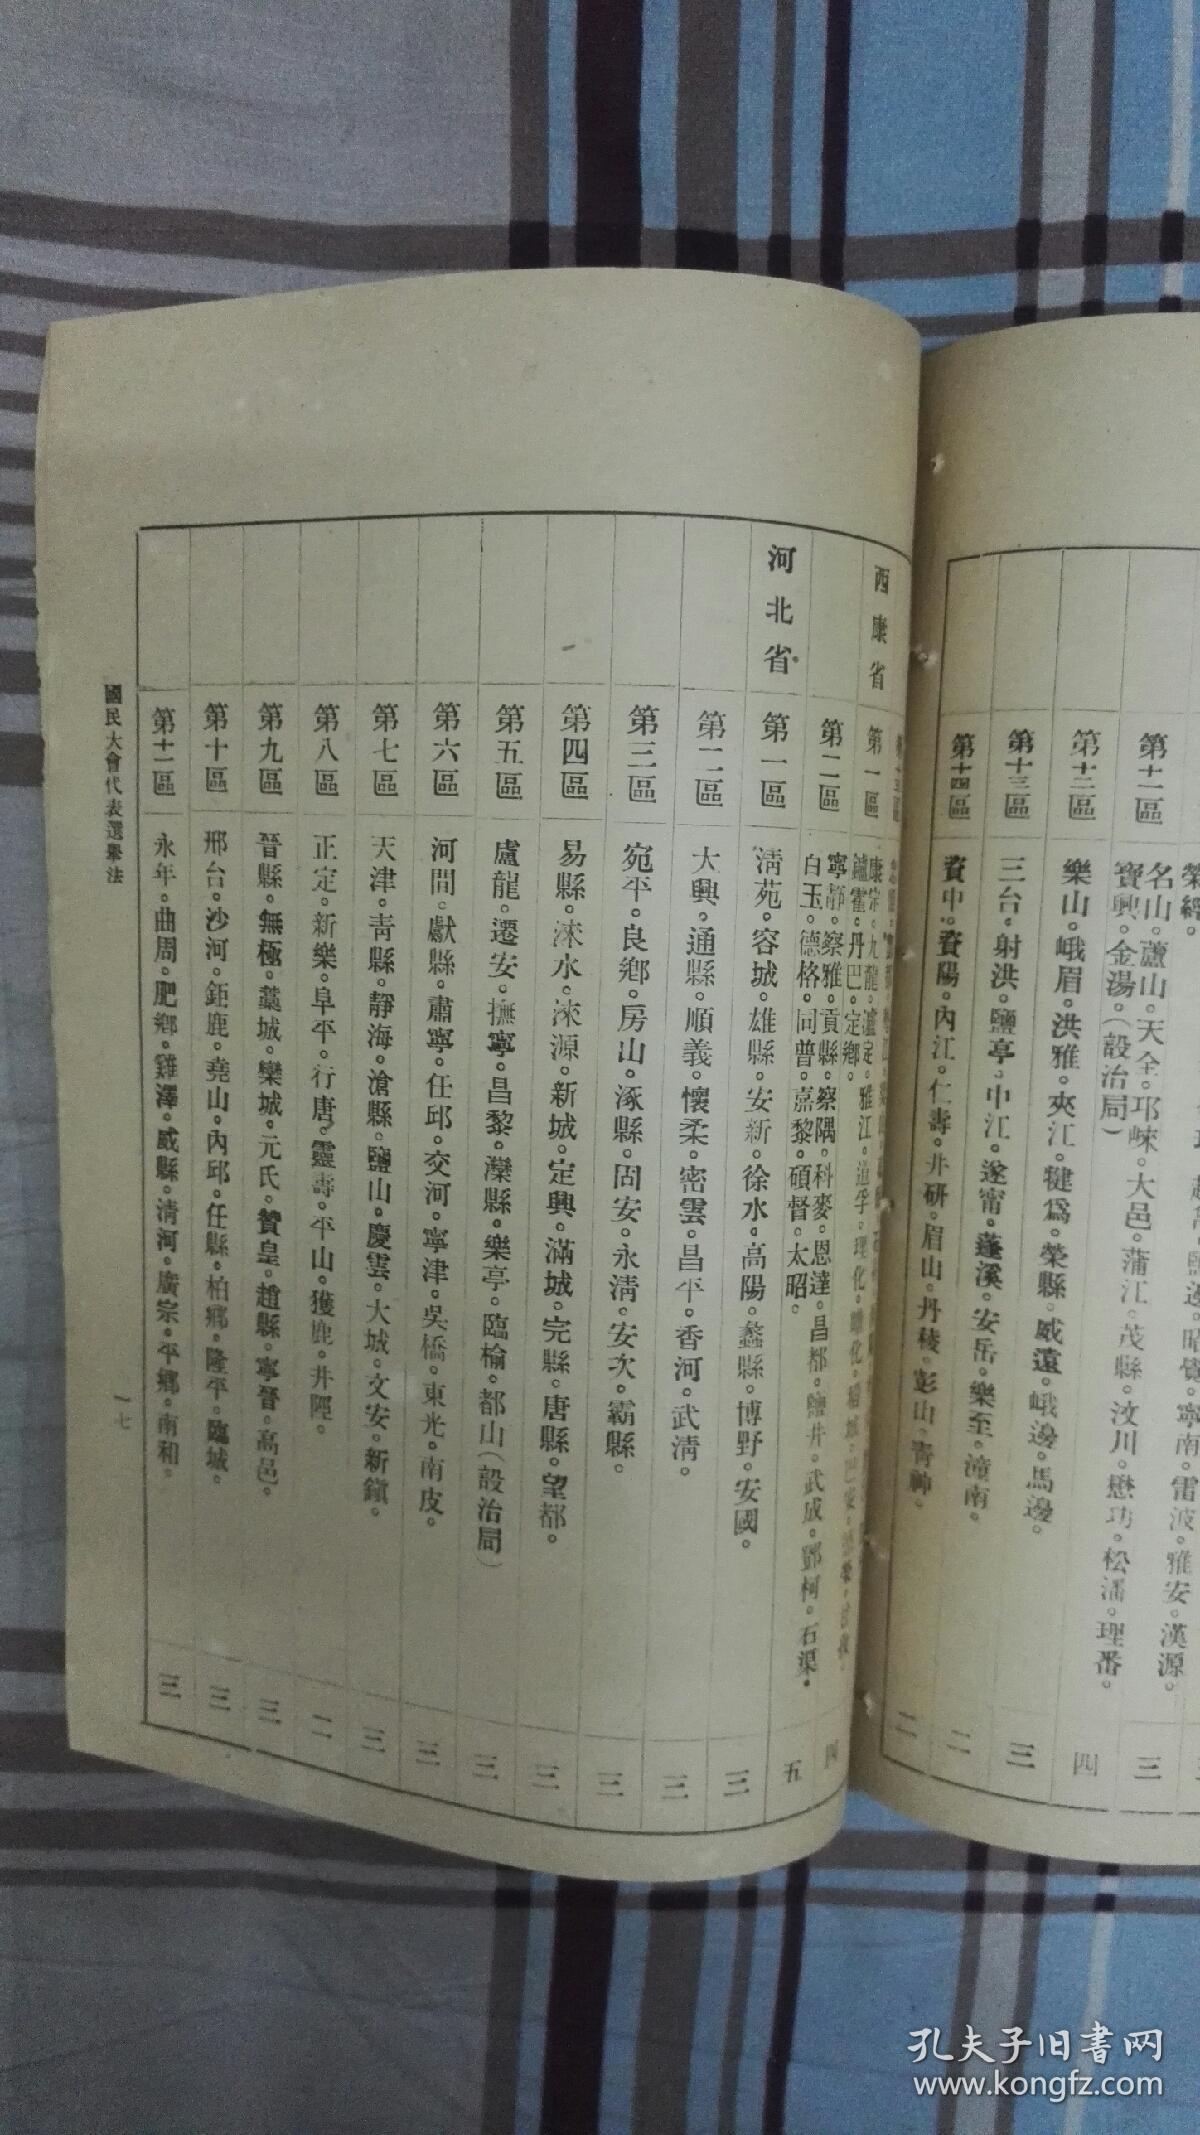 第十一區 名山。蘆山。天全。邛崍。大邑。蒲江。茂縣。汶川。懋功。松潘。理番。
寶興。金湯。(設治局) 三
第十二區 樂山。峨眉。洪雅。夾江。犍爲。榮縣。威遠。峨邊。馬邊。 四
第十三區 三台。射洪。鹽亭。中江。遂甯。蓬溪。安岳。樂至。潼南。 三
第十四區 資中。資陽。內江。仁壽。井研。眉山。丹稜。彭山。青神。 二
西康省 第一區 康定。九龍。瀘定。雅江。道孚。理化。
鑪霍。丹巴。定鄉。
第二區 寧靜。察雅。貢縣。察隅。科麥。恩達。昌都。鹽井。武成。鄧柯。石渠。
白玉。德格。同普。嘉黎。碩督。太昭。 四
河北省 第一區 清苑。容城。雄縣。安新。徐水。高陽。蠡縣。博野。安國。 五
第二區 大興。通縣。順義。懷柔。密雲。昌平。香河。武清。 三
第三區 宛平。良鄉。房山。涿縣。固安。永清。安次。霸縣。 三
第四區 易縣。淶水。淶源。新城。定興。滿城。完縣。唐縣。望都。 三
第五區 盧龍。遷安。撫寧。昌黎。灤縣。樂亭。臨榆。都山(設治局) 三
第六區 河間。獻縣。肅寧。任邱。交河。寧津。吳橋。東光。南皮。 三
第七區 天津。青縣。靜海。滄縣。鹽山。慶雲。大城。文安。新鎮。 三
第八區 正定。新樂。阜平。行唐。靈壽。平山。獲鹿。井陘。 二
第九區 晉縣。無極。藁城。欒城。元氏。贊皇。趙縣。寧晉。高邑。 三
第十區 邢台。沙河。鉅鹿。堯山。內邱。任縣。柏鄉。隆平。臨城。 三
第十一區 永年。曲周。肥鄉。雞澤。威縣。清河。廣宗。平鄉。南和。 三
國民大會代表選舉法 一七
孔夫子旧书网
www.kongfz.com